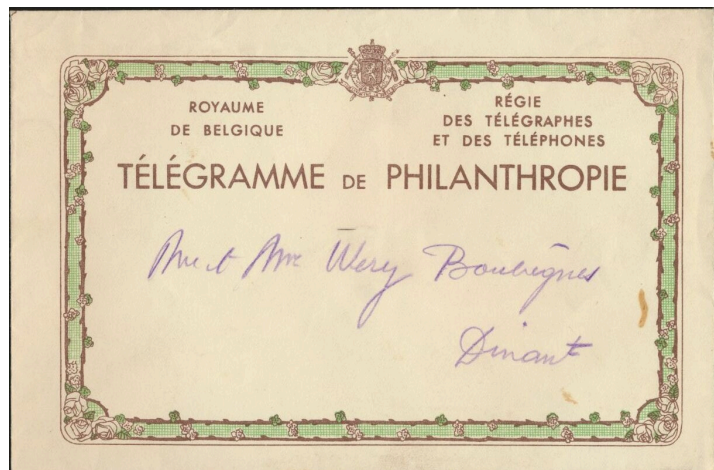 ROYAUME
DE BELGIQUE
RÉGIE
DES TÉLÉGRAPHES
ET DES TÉLÉPHONES
TÉLÉGRAMME DE PHILANTHROPIE
Mme Wery
Dinant